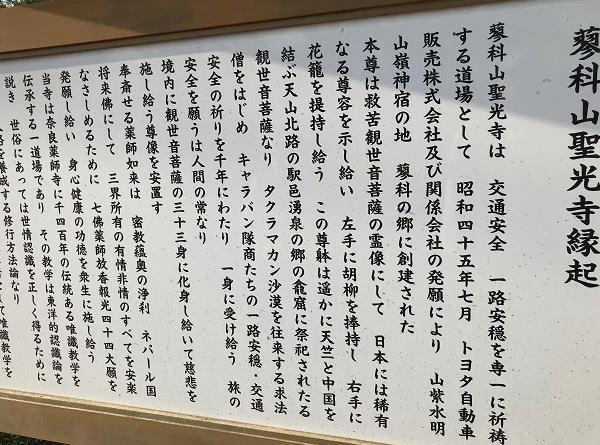 蓼科山聖光寺縁起
蓼科山聖光寺は　交通安全　一路安穏を専一に祈祷
する道場として　昭和四十五年七月　トヨタ自動車
販売株式会社及び関係会社の発願により　山紫水明
山嶺神宿の地　蓼科の郷に創建された
本尊は救苦観世音菩薩の霊像にして　日本には稀有
なる尊容を示し給い　左手に胡柳を捧持し　右手に
花籠を提持し給う　この尊躰は遥かに天竺と中国を
結ぶ天山北路の駅邑湧泉の郷の龕窟に祭祀されたる
観世音菩薩なり　タクラマカン沙漠を往来する求法
僧をはじめ　キャラバン隊商たちの一路安穏・交通
安全の祈りを千年にわたり　一身に受け給う　旅の
安全を願うは人間の常なり
境内に観世音菩薩の三十三身に化身し給いて慈悲を
施し給う尊像を安置す
奉斎せる薬師如来は　密教蘊奥の浄利　ネパール国
将来佛にして　三界所有の有情非情のすべてを安楽
なさしめるために　七佛薬師放香報光四十四大願を
発願し給い　身心健康の功徳を衆生に施し給う
当寺は奈良薬師寺に千四百年の伝統ある唯識教学を
伝承する一道場であり　その教学は東洋的認識論を
説き　世俗にあっては世情認識を正しく得るために
を養成する修行方法なり
唯識教学を